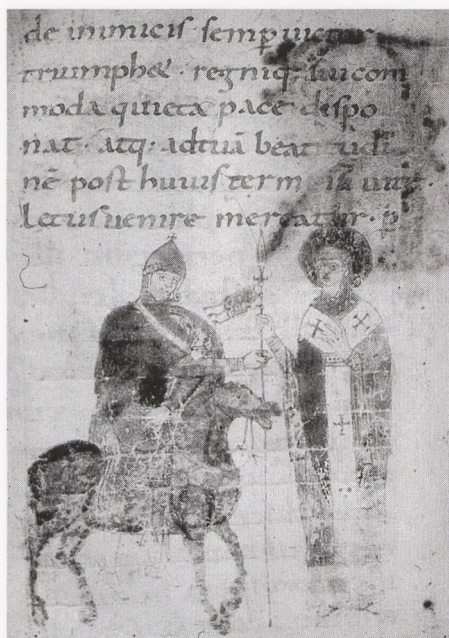 de inimicis semp uictor
triumphet · regniq; sui com
moda quieta pace dispo
nat · atq · adtuā beatitudi
nē post huius termīnū uitę ·
letus uenire mereatur · p